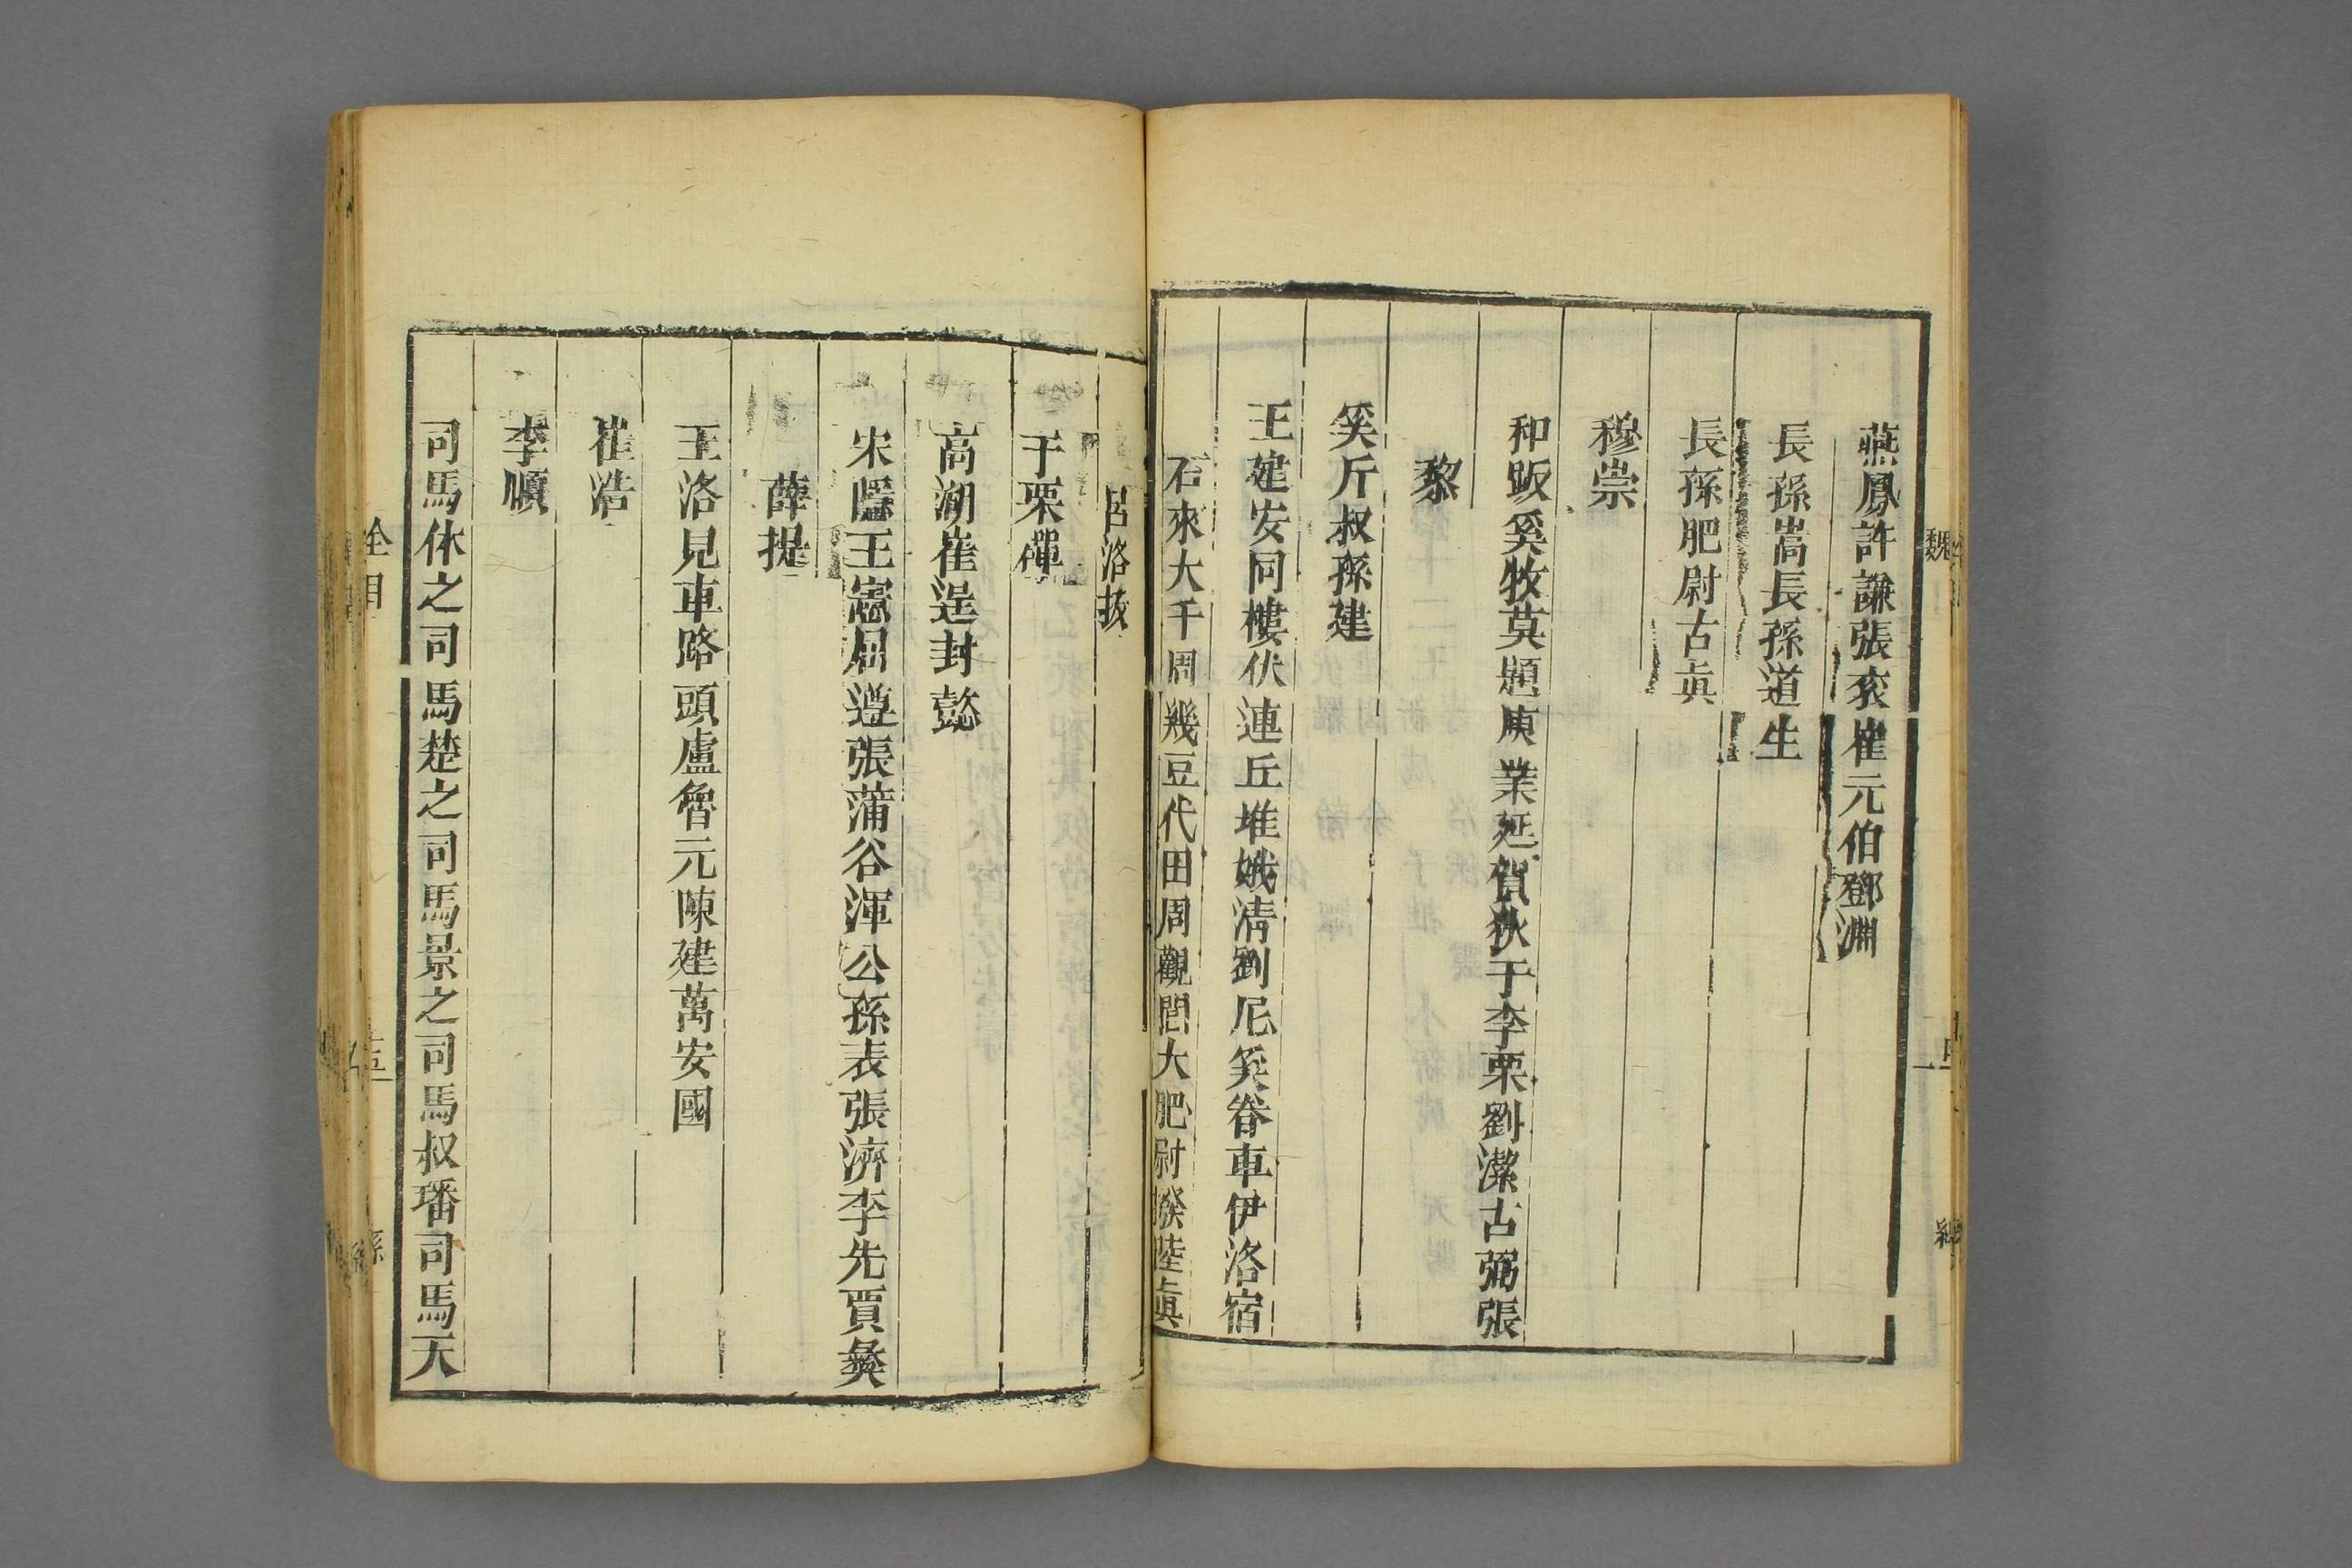 燕鳳許謙張袞崔元伯鄧淵
長孫嵩長孫道生
長孫肥尉古眞
穆崇
和跋奚牧莫題庾業延賀狄干李栗劉潔古弼張
黎
奚斤叔孫建
王建安同樓伏連丘堆娥淸劉尼奚眷車伊洛宿
石來大千周幾豆代田周觀閭大肥尉撥陸眞
呂洛拔
于栗磾
高湖崔逞封懿
宋隱王憲屈遵張蒲谷渾公孫表張濟李先賈彝
薛提
王洛兒車路頭盧魯元陳建萬安國
崔浩
李順
司馬休之司馬楚之司馬景之司馬叔璠司馬天